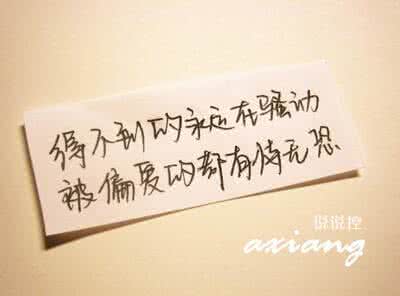 得不到的永远在骚动
被偏爱的都有恃无恐
说说控
axiang